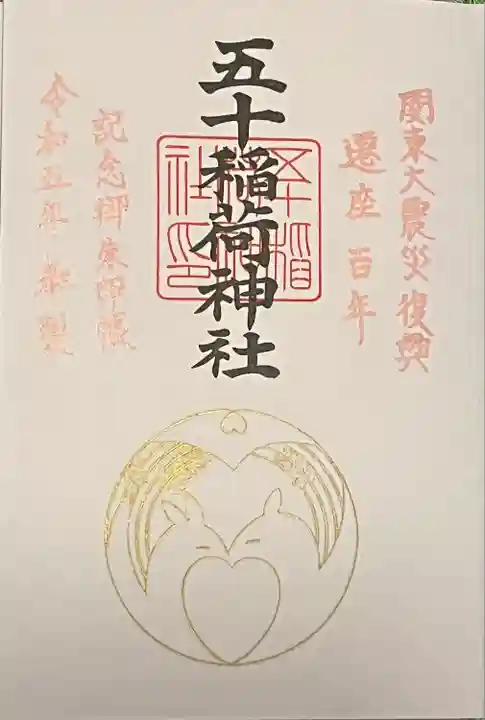 関東大震災復興
遷座百年
五十稲荷神社
五十稲荷社印
記念御朱印帳
令和五年奉製